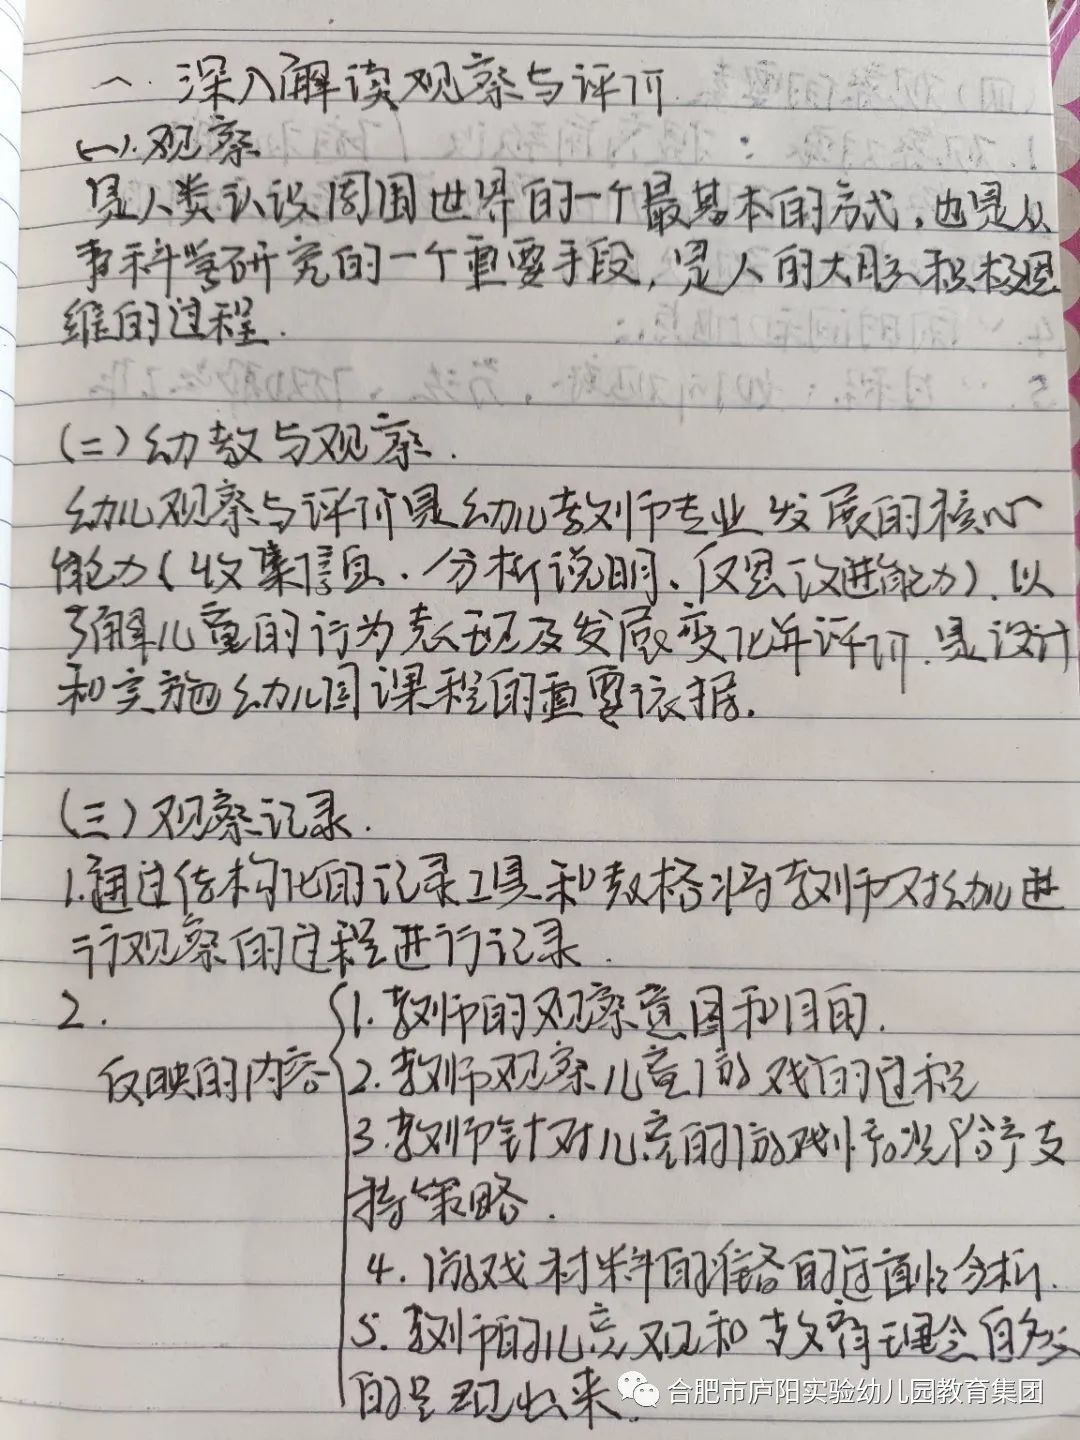 一. 深入解读观察与评价
(一). 观察
是人类认识周围世界的一个最基本的方式，也是从
事科学研究的一个重要手段，是人的大脑积极思
维的过程.
(二) 幼教与观察.
幼儿观察与评价是幼儿教师专业发展的核心
能力(收集信息、分析说明、反思改进能力). 以
了解儿童的行为表现及发展变化并评价. 是设计
和实施幼儿园课程的重要依据.
(三) 观察记录.
1. 通过结构化的记录工具和表格将教师对幼儿进
行观察的过程进行记录.
2.
反映的内容
1. 教师的观察意图和目的.
2. 教师观察儿童游戏的过程
3. 教师针对儿童的游戏情况给予支
持策略.
4. 游戏材料的准备的适宜性分析.
5. 教师的儿童观和教育理念自然
的呈现出来.
合肥市庐阳实验幼儿园教育集团